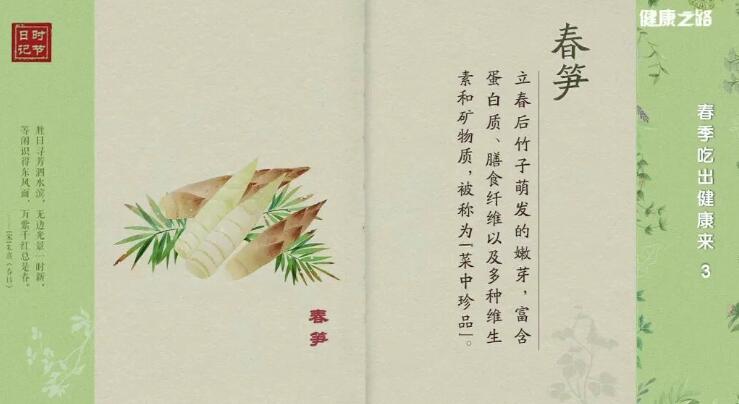 健康之路
时节
日记
胜日寻芳泗水滨，无边光景一时新。
等闲识得东风面，万紫千红总是春。
——[宋]朱熹《春日》
春笋
春笋
立春后竹子萌发的嫩芽，富含
蛋白质、膳食纤维以及多种维生
素和矿物质，被称为「菜中珍品」。
春季吃出健康来 3